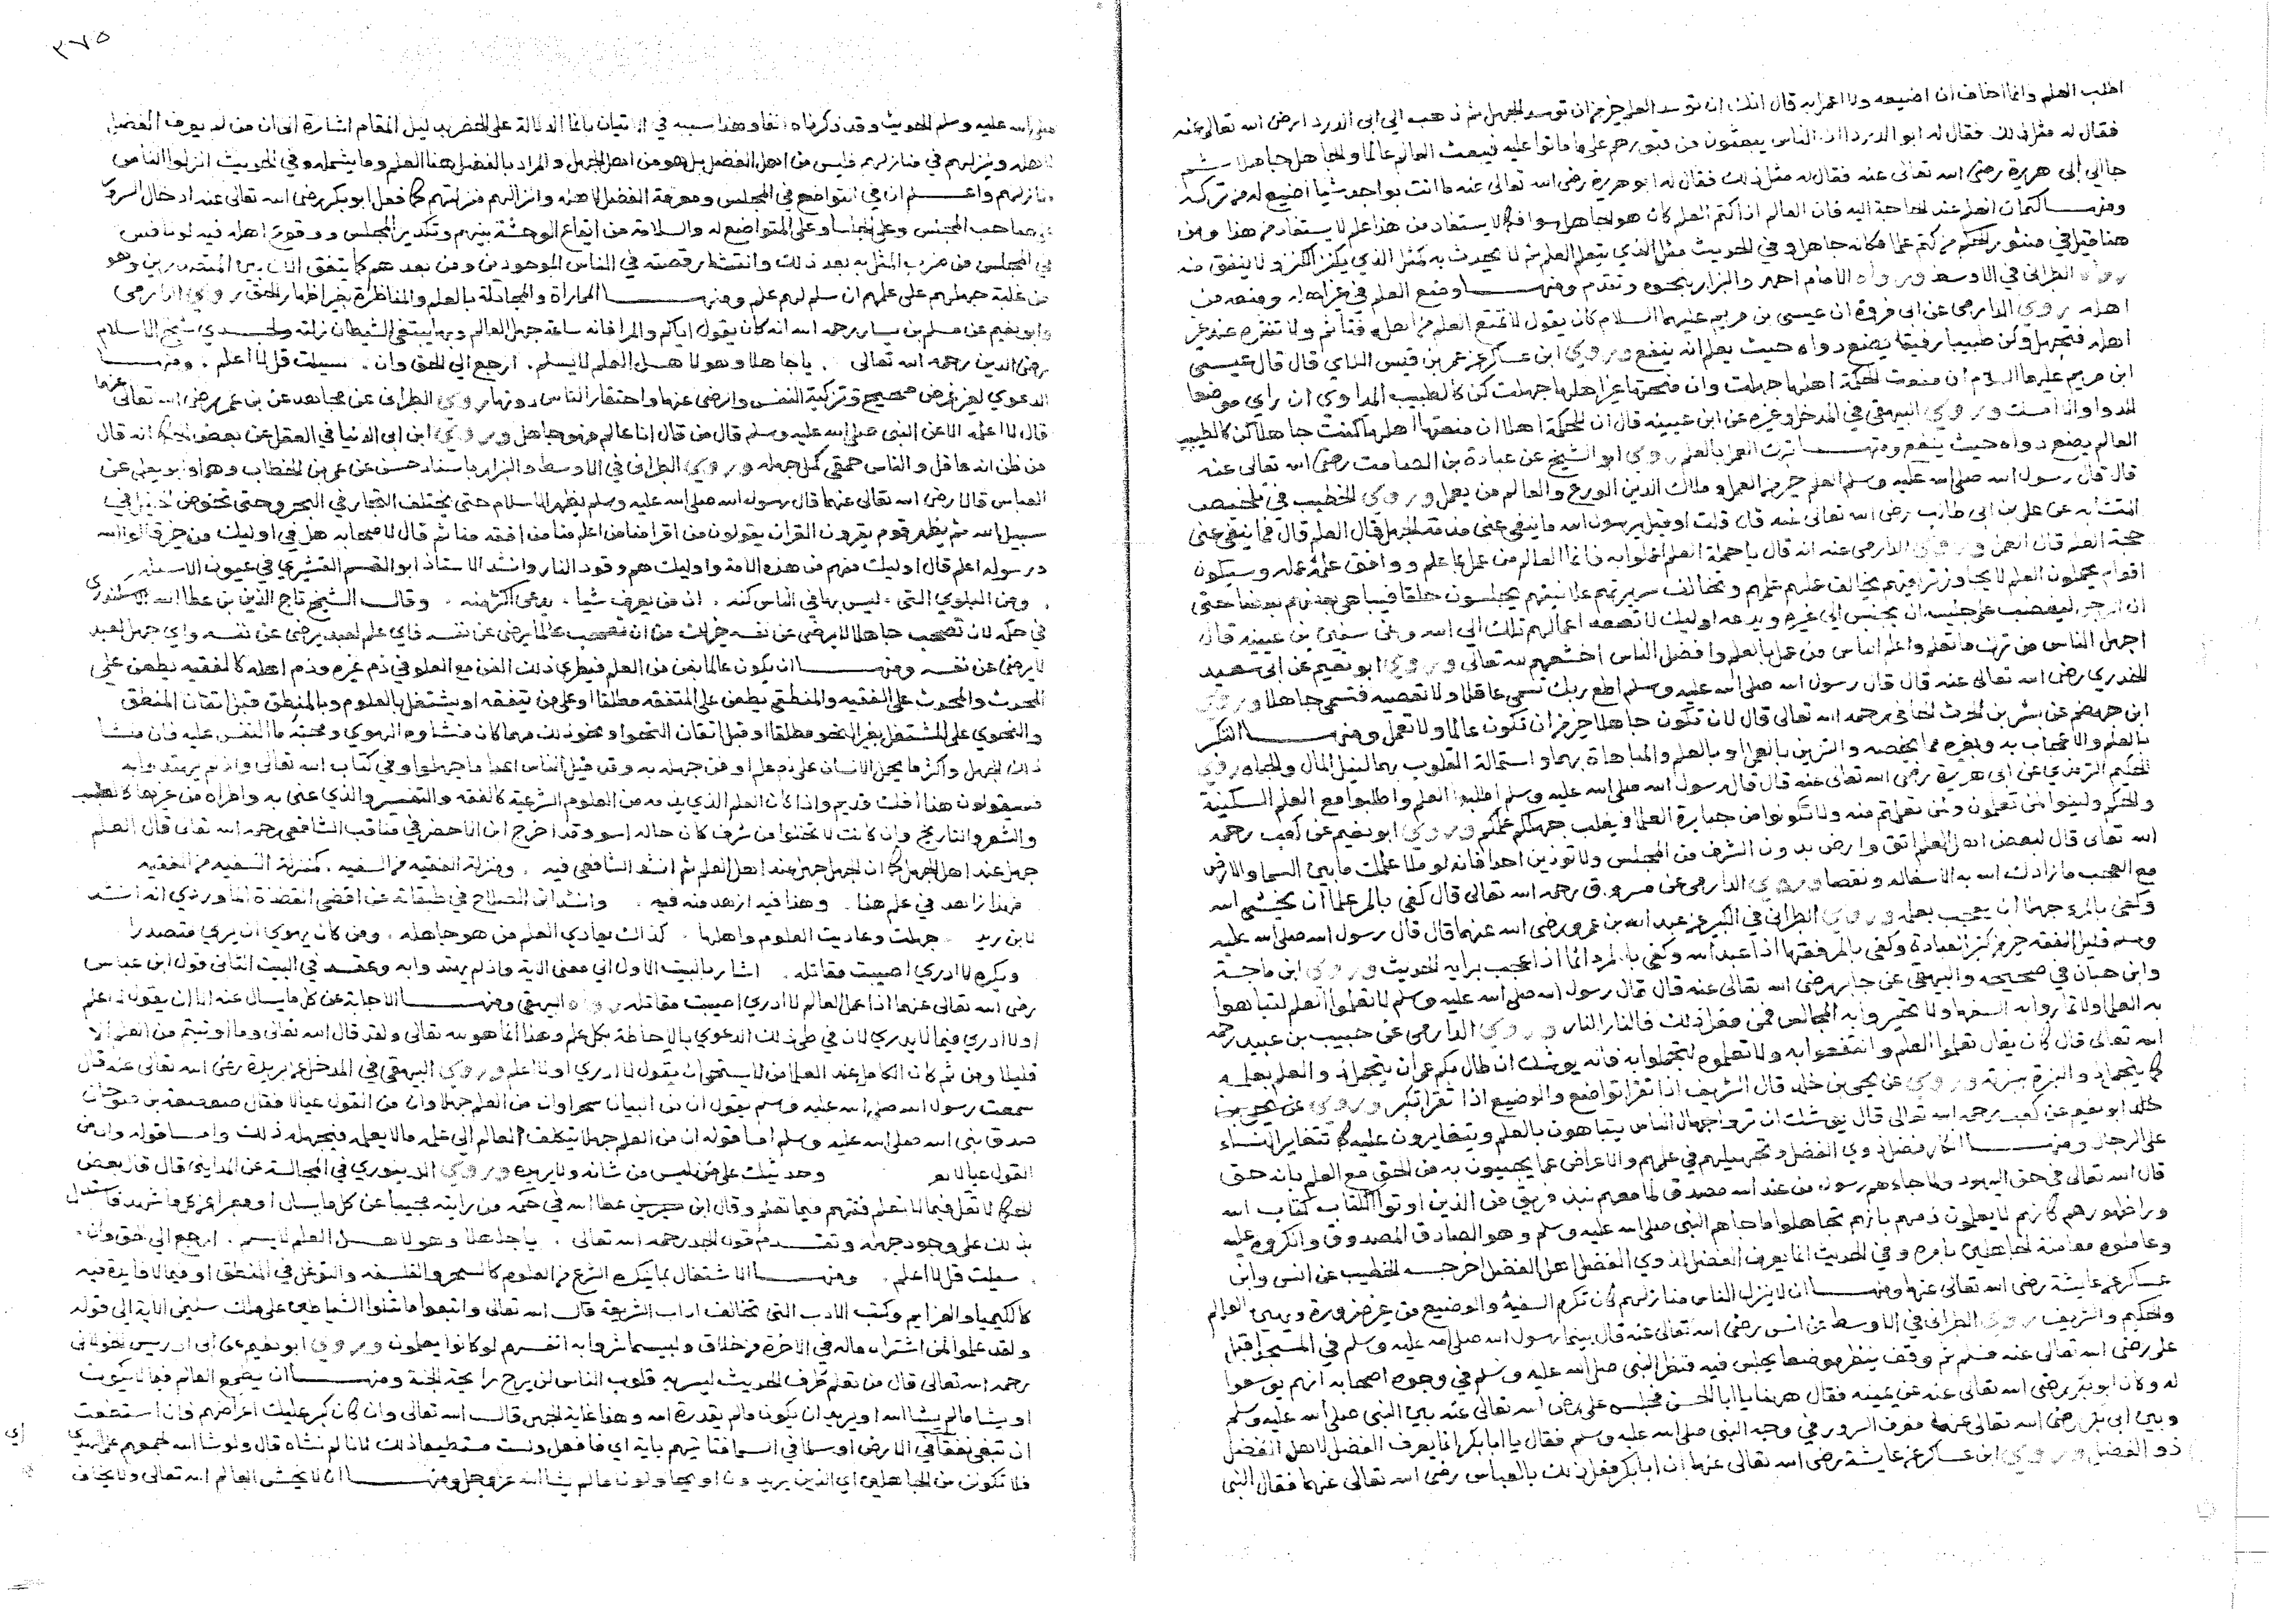 اطلب العلم وانما اخاف ان اضيعه ولا اعمل به قال انك ان توسد العلم خير من ان توسد الجهل ثم ذهب الى ابى الدرداء رضى الله تعالى عنه
فقال له مثل ذلك فقال له ابو الدرداء ان الناس يبعثون من قبورهم على ما ماتوا عليه فيبعث العالم عالما والجاهل جاهلا ثم
جا الى ابى هريرة رضى الله تعالى عنه فقال له مثل ذلك فقال له ابو هريرة رضى الله تعالى عنه ما انت بواجد شيا اضيع له من تركه
ومنها كتمان العلم عند الحاجة اليه فان العالم اذا كتم العلم كان هو والجاهل سوا فكما لا يستفاد من هذا علم لا يستفاد من هذا ومن
هنا قيل فى منثور الحكم من كتم علما فكانه جاهل وفى الحديث مثل الذى يتعلم العلم ثم لا يحدث به كمثل الذى يكنز الكنز ولا ينفق منه
رواه الطبرانى فى الاوسط ورواه الامام احمد والبزار بنحوه وتقدم ومنها وضع العلم فى غير اهله ومنعه من
اهله روى الدارمى عن ابى فروة ان عيسى بن مريم عليهما السلام كان يقول لا تمنع العلم من اهله فتاثم ولا تنشره عند غير
اهله فتجهل وكن طبيبا رفيقا يضع دواه حيث يعلم انه ينفع وروى ابن عساكر عن عمر بن قيس الملاي قال قال عيسى
ابن مريم عليهما السلام ان منعت الحكمة اهلها جهلت وان منحتها غير اهلها جهلت كن كالطبيب المداوى ان راى موضعا
للدوا والا امسك وروى البيهقى فى المدخل وغيره عن ابن عيينه قال ان للحكمة اهلا ان منعتها اهلها كنت جاهلا كن كالطبيب
العالم يضع دواه حيث ينفع ومنها ترك العمل بالعلم روى ابو الشيخ عن عبادة بن الصامت رضى الله تعالى عنه
قال قال رسول الله صلى الله عليه وسلم العلم خير من العمل وملاك الدين الورع والعالم من يعمل وروى الخطيب فى تلخيص
المتشابه عن على بن ابى طالب رضى الله تعالى عنه قال قلت او قيل يرسول الله ما ينفى عنى حجة الجهل قال العلم قال فما ينفى عنى
حجة العلم قال العمل وروى الدارمى عنه انه قال يا حملة العلم اعملوا به فانما العالم من عمل بما علم ووافق علمه عمله وسيكون
اقوام يحملون العلم لا يجاوز تراقيهم يخالف علمهم عملهم وتخالف سريرتهم علانيتهم يجلسون حلقا فيباهى بعضهم بعضا حتى
ان الرجل ليغضب على جليسه ان يجلس الى غيره ويدعه اوليك لا تصعد اعمالهم تلك الى الله وعن سفين بن عيينه قال
اجهل الناس من ترك ما تعلم واعلم الناس من عمل بالعلم وافضل الناس اخشعهم لله تعالى وروى ابو نعيم عن ابى سعيد
الخدرى رضى الله تعالى عنه قال قال رسول الله صلى الله عليه وسلم اطع ربك تسمى عاقلا ولا تعصيه فتسمى جاهلا وروى
عن بشر بن الحرث الحافى رحمه الله تعالى قال لان تكون جاهلا خير من ان تكون عالما ولا تعمل ومنها التكبر
بالعلم والاعجاب به وبغيره مما يخصه والتزين بالعمل او بالعلم والمباهاة بهما واستمالة القلوب بهما لنيل المال والجاه روى
الحكيم الترمذى عن ابى هريرة رضى الله تعالى عنه قال قال رسول الله صلى الله عليه وسلم اطلبوا العلم واطلبوا مع العلم السكينة
والحلم ولينوا لمن تعلمون ولمن تعلمتم منه ولا تكونوا من جبابرة العلما فيغلب جهلكم علمكم وروى ابو نعيم عن كعب رحمه
الله تعالى قال لبعض اهل العلم اتق وارض بدون الشرف من المجلس ولا توذين احدا فانه لو ملا علمك ما بين السما والارض
مع العجب ما زادك الله به الا سفاله ونقصا وروى الدارمى عن مسروق رحمه الله تعالى قال كفى بالمر علما ان يخشى الله
وكفى بالمر جهلا ان يعجب بعلمه وروى الطبرانى فى الكبير عن عبد الله بن عمرو رضى الله عنهما قال قال رسول الله صلى الله عليه
وسلم قليل الفقه خير من كثير العبادة وكفى بالمر فقها اذا عبد الله وكفى بالمر اثما اذا اعجب برايه الحديث وروى ابن ماجة
وابن حبان فى صحيحه والبيهقى عن جابر رضى الله تعالى عنه قال قال رسول الله صلى الله عليه وسلم لا تعلموا العلم لتباهوا
به العلما ولا تماروا به السفها ولا تخيروا به المجالس فمن فعل ذلك فالنار النار وروى الدارمى عن حبيب بن عبيد رحمه
الله تعالى قال كان يقال تعلموا العلم وانتفعوا به ولا تعلموه لتتجملوا به فانه يوشك ان طال بكم عمر ان يتجمل ذو العلم بعلمه
كما يتجمل ذو البزة ببزته وروى عن يحيى بن خلد قال الشريف اذا تقرا تواضع والوضيع اذا تقرا تكبر وروى
ابو نعيم عن كعب رحمه الله تعالى قال يوشك ان تروا جهال الناس يتباهون بالعلم ويتغايرون عليه كما تتغاير النساء
على الرجال ومنها انكار فضل ذوى الفضل وتجهيلهم فى علمهم والاعراض عما يجيبون به من الحق مع العلم بانه حق
قال الله تعالى فى حق اليهود ولما جاءهم رسول من عند الله مصدق لما معهم نبذ فريق من الذين اوتوا الكتاب كتاب الله
ورا ظهورهم كانهم لا يعلمون ذمهم بانهم تجاهلوا ما جاهم النبى صلى الله عليه وسلم وهو الصادق المصدوق وانكروه عليه
وعاملوه معاملة الجاهلين بامره وفى الحديث انما يعرف الفضل لذوى الفضل اهل الفضل اخرجه الخطيب عن انس وابن
عساكر عن عايشة رضى الله تعالى عنها ومنها ان لا ينزل الناس منازلهم كان تكرم السفيه والوضيع من غير ضرورة ويهين العالم
والحكيم والشريف روى الطبرانى فى الاوسط عن انس رضى الله تعالى عنه قال بينما رسول الله صلى الله عليه وسلم فى المسجد اقبل
على رضى الله تعالى عنه فسلم ثم وقف ينظر موضعا يجلس فيه فنظر النبى صلى الله عليه وسلم فى وجوه اصحابه ايهم يوسع
له وكان ابو بكر رضى الله تعالى عنه عن يمينه فقال ههنا يا ابا الحسن فجلس على رضى الله تعالى عنه بين النبى صلى الله عليه وسلم
وبين ابى بكر رضى الله تعالى عنهما فعرف السرور فى وجه النبى صلى الله عليه وسلم فقال يا ابا بكر انما يعرف الفضل لاهل الفضل
ذو الفضل وروى ابن عساكر عن عايشة رضى الله تعالى عنها ان ابا بكر فعل ذلك بالعباس رضى الله تعالى عنهما فقال النبى
٢٧٥
صلى الله عليه وسلم الحديث وقد ذكرناه انفا وهذا سببه فى الاتيان بانما الدالة على الحصر بدليل المقام اشارة الى ان من لم يعرف الفضل
لاهله وينزلهم فى منازلهم فليس من اهل الفضل بل هو من اهل الجهل والمراد بالفضل هنا العلم وما يشمله وفى الحديث انزلوا الناس
منازلهم واعلم ان فى التواضع فى المجلس ومعرفة الفضل لاهله وانزالهم منزلتهم كما فعل ابو بكر رضى الله تعالى عنه ادخال السرور
على صاحب المجلس وعلى الجلسا وعلى المتواضع له والسلامة من ايقاع الوحشة بينهم وتكدير المجلس ووقوع اهله فيه لو نافس
فى المجلس من ضرب المثل به بعد ذلك وانتشار قصته فى الناس الموجودين ومن بعدهم كما يتفق الان بين المتصدرين وهو
من غلبة جهلهم على علمهم ان سلم لهم علم ومنها المماراة والمجادلة بالعلم والمناظرة بغير اظهار الحق روى الدارمى
وابو نعيم عن مسلم بن يسار رحمه الله انه كان يقول اياكم والمرا فانه ساعة جهل العالم وبها يبتغى الشيطان زلته ولجدى شيخ الاسلام
رضى الدين رحمه الله تعالى . يا جاهلا وهو لاهل العلم لا يسلم . ارجع الى الحق وان . سيلت قل لا اعلم . ومنها
الدعوى لغير غرض صحيح وتزكية النفس والرضى عنها واحتقار الناس دونها روى الطبرانى عن مجاهد عن بن عمر رضى الله تعالى عنهما
قال لا اعلمه الا عن النبى صلى الله عليه وسلم قال من قال انا عالم فهو جاهل وروى ابن ابى الدنيا فى العقل عن بعض الحكما انه قال
من ظن انه عاقل والناس حمقى كمل جهله وروى الطبرانى فى الاوسط والبزار باسناد حسن عن عمر بن الخطاب وهو وابو يعلى عن
العباس قالا رضى الله تعالى عنهما قال رسول الله صلى الله عليه وسلم يظهر الاسلام حتى يختلف التجار فى البحر وحتى تخوض الخيل فى
سبيل الله ثم يظهر قوم يقرون القران يقولون من اقرا منا من اعلم منا من افقه منا ثم قال لاصحابه هل فى اوليك من خير قالوا الله
ورسوله اعلم قال اوليك منهم من هذه الامة واوليك هم وقود النار وانشد الاستاذ ابو القسم القشيرى فى عيون الاسئلة
. ومن البلوى التى . ليس بها فى الناس كنه . ان من يعرف شيا . يدعى اكثر منه . وقال الشيخ تاج الدين بن عطا الله الاسكندرى
فى حكمه لان تصحب جاهلا لا يرضى عن نفسه خير لك من ان تصحب عالما يرضى عن نفسه فاى علم لعبد يرضى عن نفسه واى جهل لعبد
لا يرضى عن نفسه ومنها ان يكون عالما بفن من العلم فيطرى ذلك الفن مع الغلو فى ذم غيره وذم اهله كالفقيه يطعن على
المحدث والمحدث على الفقيه والمنطقى يطعن على المتفقه مطلقا وعلى من يتفقه او يشتغل بالعلوم وبالمنطق قبل اتقان المنطق
والنحوى على المشتغل بغير النحو مطلقا او قبل اتقان النحو ونحو ذلك مهما كان منشاوه الهوى ومحبة ما النفس عليه فان منشا
ذلك الجهل واكثر ما يحمل الانسان على ذم علم او فن جهله به وقد قيل الناس اعدا ما جهلوا وفى كتاب الله تعالى واذ لم يهتدوا به
فسيقولون هذا افك قديم واذا كان العلم الذى يذمه من العلوم الشرعية كالفقه والتفسير والذى عنى به وافراه من غيرها كالطب
والشعر والتاريخ وان كانت لا تخلوا من شرف كان حاله اسو وقد اخرج ابن الاخضر فى مناقب الشافعى رحمه الله تعالى قال العلم
جهل عند اهل الجهل كما ان الجهل جهل عند اهل العلم ثم انشد الشافعى فيه . ومنزلة الفقيه من السفيه . كمنزلة السفيه من الفقيه
فهذا زاهد فى علم هذا . وهذا فيه ازهد منه فيه . وانشد ابن الصلاح فى طبقاته عن اقضى القضاة الماوردى انه انشد
لابن دريد . جهلت وعاديت العلوم واهلها . كذاك يعادى العلم من هو جاهله . ومن كان يهوى ان يرى متصدرا
ويكره لا ادرى اصيبت مقاتله . اشار بالبيت الاول الى معنى الاية واذ لم يهتدوا به وعقد فى البيت الثانى قول ابن عباس
رضى الله تعالى عنهما اذا اخطا العالم لا ادرى اصيبت مقاتله رواه البيهقى ومنها الاجابة عن كل ما يسال عنه او ان يقول لا اعلم
او لا ادرى فيما لا يدرى لان فى طى ذلك الدعوى بالاحاطة بكل علم وهذا انما هو لله تعالى ولقد قال الله تعالى وما اوتيتم من العلم الا
قليلا ومن ثم كان الكامل عند العلما من لا يستحى ان يقول لا ادرى او لا اعلم وروى البيهقى فى المدخل عن بريدة رضى الله تعالى عنه قال
سمعت رسول الله صلى الله عليه وسلم يقول ان من البيان سحرا وان من العلم جهلا وان من القول عيالا فقال صعصعة بن صوحان
صدق نبى الله صلى الله عليه وسلم اما قوله ان من العلم جهلا يتكلف العالم الى علمه ما لا يعلمه فيجهله ذلك واما قوله وان من
القول عيالا وحديثك على من ليس من شانه ولا يريده وروى الدينورى فى المجالسة عن المداينى قال قال بعض
الحكما لا تقل فيما لا تعلم فتتهم فيما تعلم وقال ابن عطا الله فى حكمه من رايته مجيبا عن كل ما سال ومعبرا عن كل ما شهد فاستدل
بذلك على وجود جهله وتقدم قول الجد رحمه الله تعالى . يا جاهلا وهو لاهل العلم لا يسلم . ارجع الى الحق وان .
. سيلت قل لا اعلم . ومنها الاشتغال بما ينكره الشرع من العلوم كالسحر والفلسفه والتوغل فى المنطق او فيما لا فايدة فيه
كالكيميا والعزايم وكتب الادب التى تخالف اداب الشريعة قال الله تعالى واتبعوا ما تتلوا الشياطين على ملك سليمن الاية الى قوله
ولقد علموا لمن اشتراه ماله فى الاخرة من خلاق ولبيس ما شروا به انفسهم لو كانوا يعلمون وروى ابو نعيم عن ابى ادريس الخولانى
رحمه الله تعالى قال من تعلم طرف الحديث ليسر به قلوب الناس لن يرح رايحة الجنة ومنها ان يطمع العالم فيما لا يكون
او يشا ما لم يشا الله او يريد ان يكون ما لم يقدره الله وهذا غاية الجهل قال الله تعالى وان كان كبر عليك اعراضهم فان استطعت
ان تبتغى نفقا فى الارض او سلما فى السما فتاتيهم باية اى فافعل ولست مستطيعا ذلك لانا لم نشاه قال ولو شا الله لجمعهم على الهدى
فلا تكونن من الجاهلين اى الذين يريدون او يحاولون ما لم يشا الله عز وجل ومنها ان لا يخشى العالم الله تعالى ولا يخاف